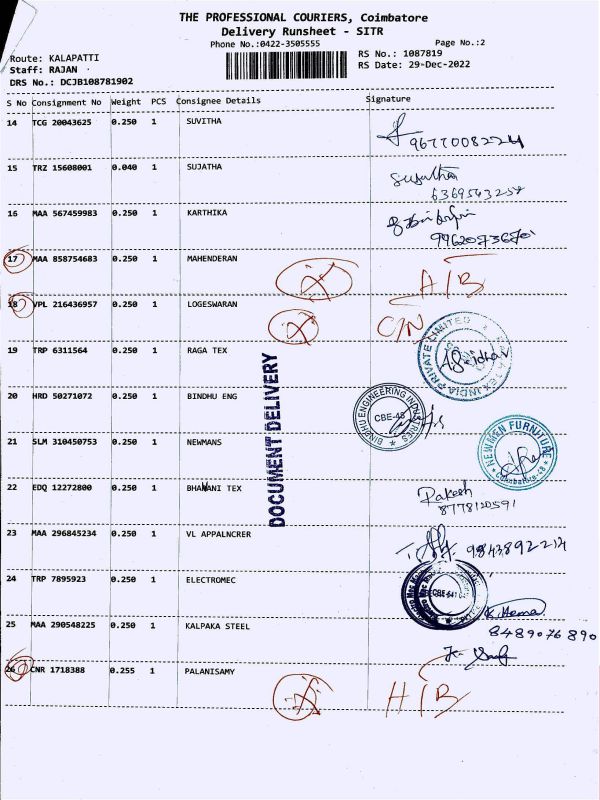 THE PROFESSIONAL COURIERS, Coimbatore
Delivery Runsheet - SITR
Phone No.:0422-3505555 Page No.:2
Route: KALAPATTI RS No.: 1087819
Staff: RAJAN RS Date: 29-Dec-2022
DRS No.: DCJB108781902
S No Consignment No Weight PCS Consignee Details Signature
14 TCG 20043625 0.250 1 SUVITHA
9677008224
15 TRZ 15608001 0.040 1 SUJATHA Sujatha
6369543257
16 MAA 567459983 0.250 1 KARTHIKA
17 MAA 858754683 0.250 1 MAHENDERAN
18 VPL 216436957 0.250 1 LOGESWARAN
19 TRP 6311564 0.250 1 RAGA TEX
PRIVATE LIMITED
20 HRD 50271072 0.250 1 BINDHU ENG
BINDHU ENGINEERING INDUSTRIES
CBE-48
DOCUMENT DELIVERY
21 SLM 310450753 0.250 1 NEWMANS
NEWMEN FURNITURE
Coimbatore-48
22 EDQ 12272800 0.250 1 BHAWANI TEX
8778120591
23 MAA 296845234 0.250 1 VL APPALNCRER
9843892214
24 TRP 7895923 0.250 1 ELECTROMEC
K. Hema
25 MAA 290548225 0.250 1 KALPAKA STEEL 8489076890
26 CNR 1718388 0.255 1 PALANISAMY